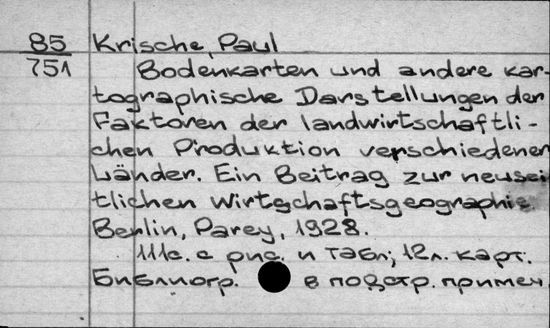 85 Krische, Paul
751 Bodenkarten und andere kar-
tographische Darstellungen der
Faktoren der landwirtschaftli-
chen Produktion verschiedener
Länder. Ein Beitrag zur neusei
tlichen Wirtschaftsgeographie.
Berlin, Parey, 1928.
111с. с рис. и табл; 12л. карт.
Библиогр. в подстр. примеч.